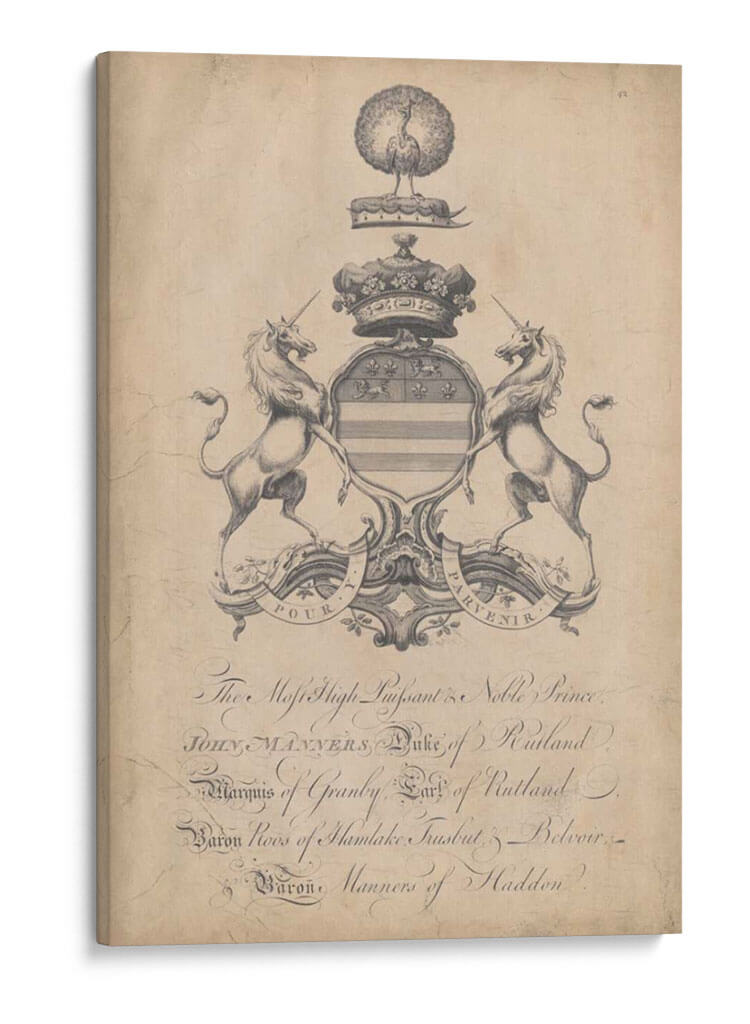 42
POUR · Y · PARVENIR ·
The Moſt High Puiſsant & Noble Prince,
JOHN MANNERS, Duke of Rutland,
Marquis of Granby, Earl of Rutland,
Baron Roos of Hamlake, Trusbut, & Belvoir,
& Baron Manners of Haddon.